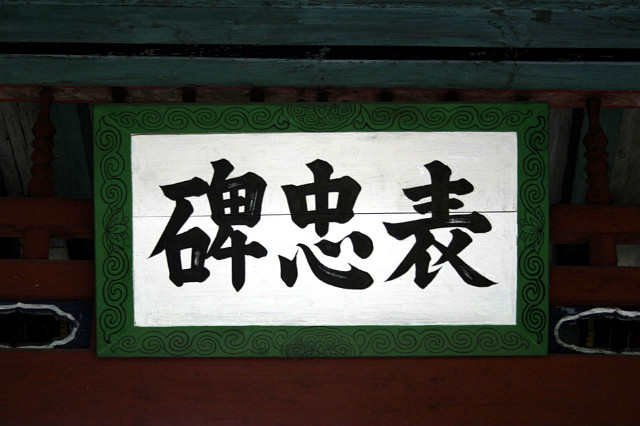 表忠碑